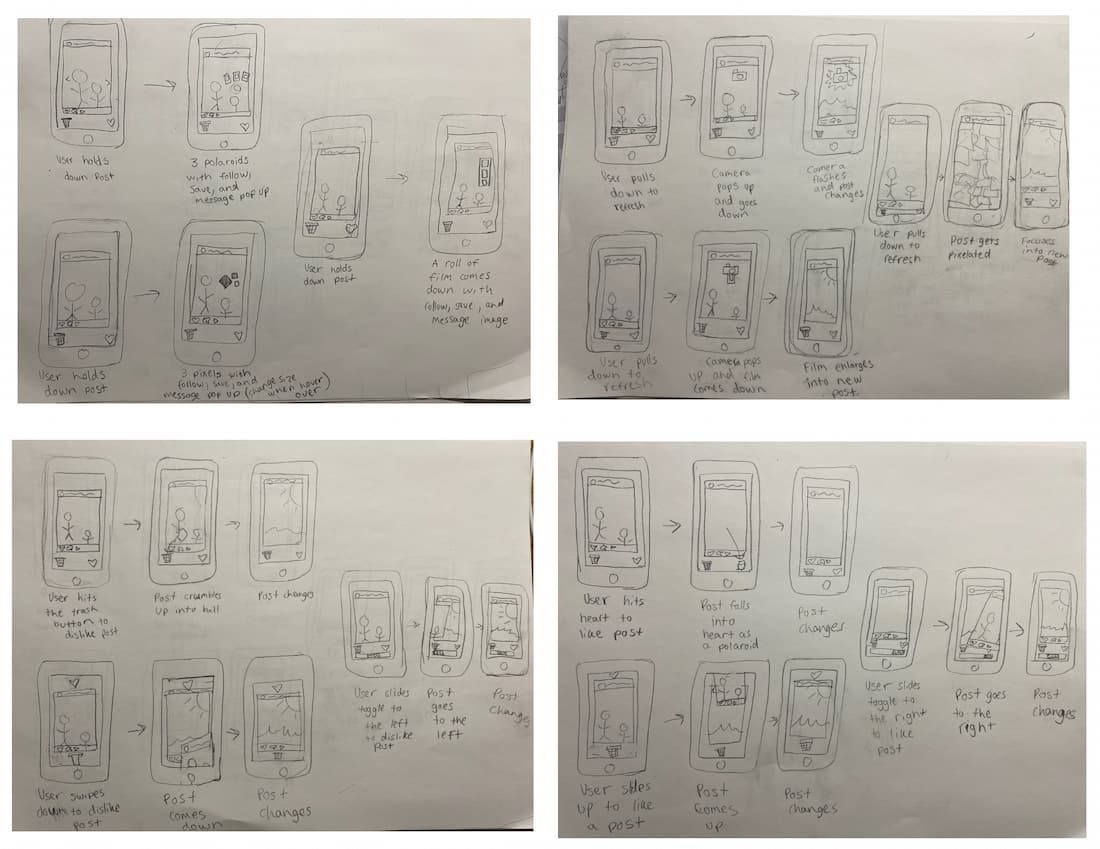 User holds
down Post
3 polaroids
with follow,
save, and
message pop up
User holds
down post
A roll of
film comes
down with
follow, save, and
message image
User holds
down post
3 pixels with
follow, save, and
message pop up (change size
when hover
over)
User pulls
down to
refresh
Camera
pops up
and goes
down
Camera
flashes
and post
changes
User pulls
down to
refresh
Post gets
pixelated
Focuses
into new
Post
User pulls
down to
refresh
Camera pops
up and film
comes down
Film enlarges
into new
post
User hits
the trash
button to
dislike post
Post crumbles
up into ball
Post changes
User slides
toggle to
the left
to dislike
post
Post
goes
to the
left
Post
changes
User swipes
to dislike
post
Post
comes
down
Post
changes
User hits
heart to
like post
Post falls
into
heart as
a polaroid
Post
changes
User slides
toggle to
the right to
like
post
Post goes
to the
right
Post
changes
User slides
up to like
a post
Post
comes
up
Post
changes